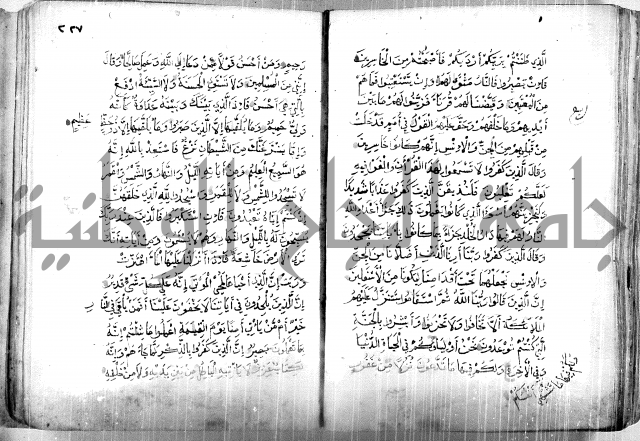 الذي ظننتم بربكم ارديكم فاصبحتم من الخاسرين
فان يصبروا فالنار مثوى لهم وان يستعتبوا فما هم
من المعتبين وقيضنا لهم قرناء فزينوا لهم ما بين
ايديهم وما خلفهم وحق عليهم القول في امم قد خلت
من قبلهم من الجن والانس انهم كانوا خاسرين
وقال الذين كفروا لا تسمعوا لهذا القرآن والغوا فيه
لعلكم تغلبون فلنذيقن الذين كفروا عذابا شديدا
ولنجزينهم اسوا الذي كانوا يعملون ذلك جزاء اعداء الله
النار لهم فيها دار الخلد جزاء بما كانوا بآياتنا يجحدون
وقال الذين كفروا ربنا ارنا الذين اضلانا من الجن
والانس نجعلهما تحت اقدامنا ليكونا من الاسفلين
ان الذين قالوا ربنا الله ثم استقاموا تتنزل عليهم
الملائكة الا تخافوا ولا تحزنوا وابشروا بالجنة
التي كنتم توعدون نحن اولياؤكم في الحياة الدنيا
وفي الآخرة ولكم فيها ما تدعون نزلا من غفور
٢٣٧
رحيم ومن احسن قولا ممن دعا الى الله وعمل صالحا وقال
انني من المسلمين ولا تستوي الحسنة ولا السيئة ادفع
بالتي هي احسن فاذا الذي بينك وبينه عداوة كانه
ولي حميم وما يلقيها الا الذين صبروا وما يلقيها الا ذو حظ عظيم
واما ينزغنك من الشيطان نزغ فاستعذ بالله انه
هو السميع العليم ومن آياته الليل والنهار والشمس والقمر
لا تسجدوا للشمس ولا للقمر واسجدوا لله الذي خلقهن
ان كنتم اياه تعبدون فان استكبروا فالذين عند ربك
يسبحون له بالليل والنهار وهم لا يسئمون ومن آياته انك
ترى الارض خاشعة فاذا انزلنا عليها الماء اهتزت
وربت ان الذي احياها لمحي الموتى انه على كل شيء قدير
ان الذين يلحدون في آياتنا لا يخفون علينا افمن يلقى في النار
خير ام من يأتي آمنا يوم القيمة اعملوا ما شئتم انه
بما تعملون بصير ان الذين كفروا بالذكر لما جاءهم وانه
لكتاب عزيز لا يأتيه الباطل من بين يديه ولا من خلفه
جامعة النجاح الوطنية